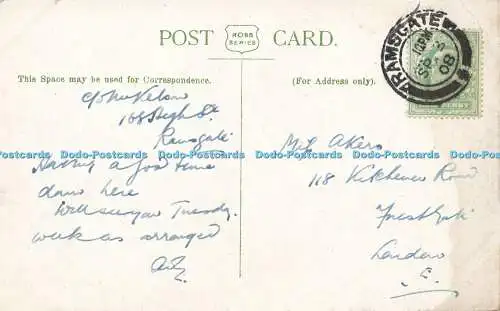 POST CARD.
ROSS SERIES
This Space may be used for Correspondence.
(For Address only).
RAMSGATE
SP
08
168 High St
Ramsgate
Having a good time
down here
Will see you Tuesday
week as arranged
Akers
118 Kitchener Road
Forest Gate
London
E.
Dodo-Postcards Dodo-Postcards Dodo-Postcards Dodo-Postcards Dodo-Postcards